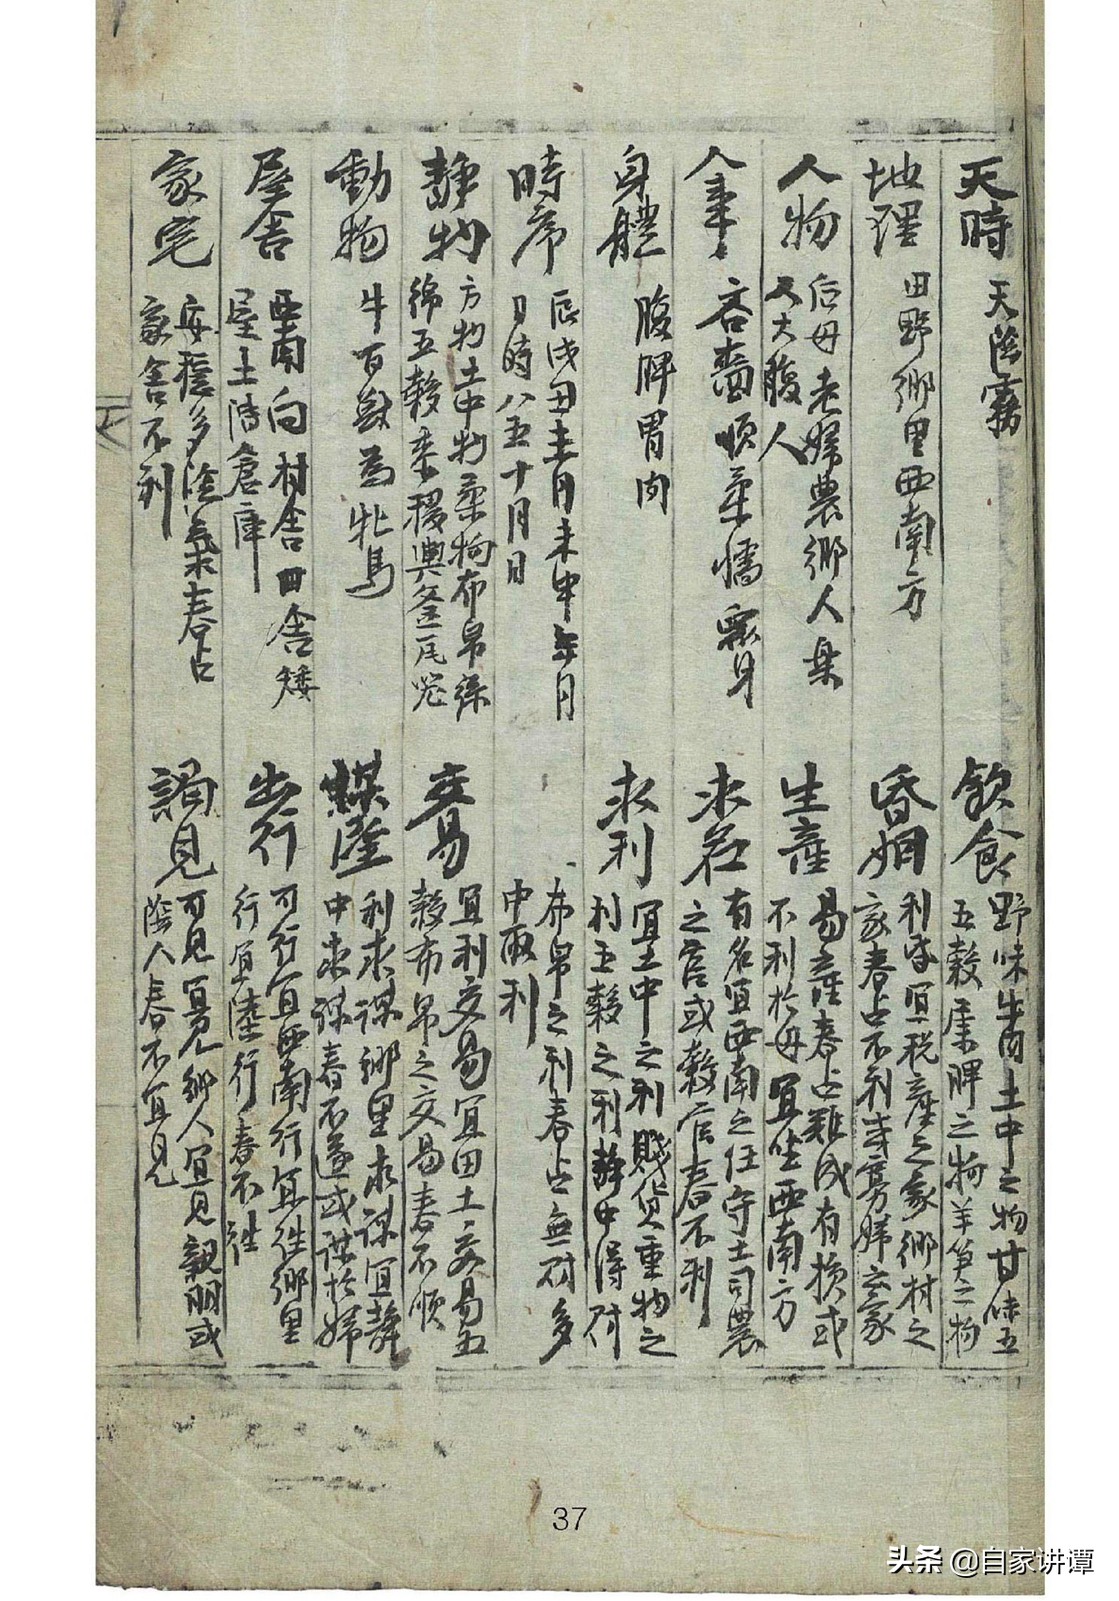 天時 天陰霧
地理 田野鄉里西南方
人物 后母老婦農鄉人衆
人大腹人
人事 吝嗇順柔懦衆身
身體 腹脾胃肉
時序 辰戌丑未月未申年月
日時八五十月日
靜物 方物土中物柔物布帛絲
綿五穀來稷輿釜瓦器
動物 牛百獸為牝馬
屋舍 西南向村舍田舍矮
屋土階倉庫
家宅 安穩多陰氣春占
家舍不利
飲食 野味牛肉土中之物甘味五
五穀 脾之物羊笋之物
昏姻 利昏宜税產之家鄉村之
家春占不利或寡婦之家
生產 易產春占難成有損或
不利於母宜坐西南方
求名 有名宜西南之任守土司農
之官或教官春不利
求利 宜土中之利賤貨重物之
利五穀之利靜中得財
布帛之利春占無財多
中取利
交易 宜利交易宜田土交易五
穀布帛之交易春不順
謀 利求謀鄉里求謀宜靜
中求謀春不遂或謀於婦
出行 可行宜西南行宜往鄉里
行宜陸行春不往
謁見 可見宜見鄉人宜見親朋或
陰人春不宜見
37
头条 @自家讲谭